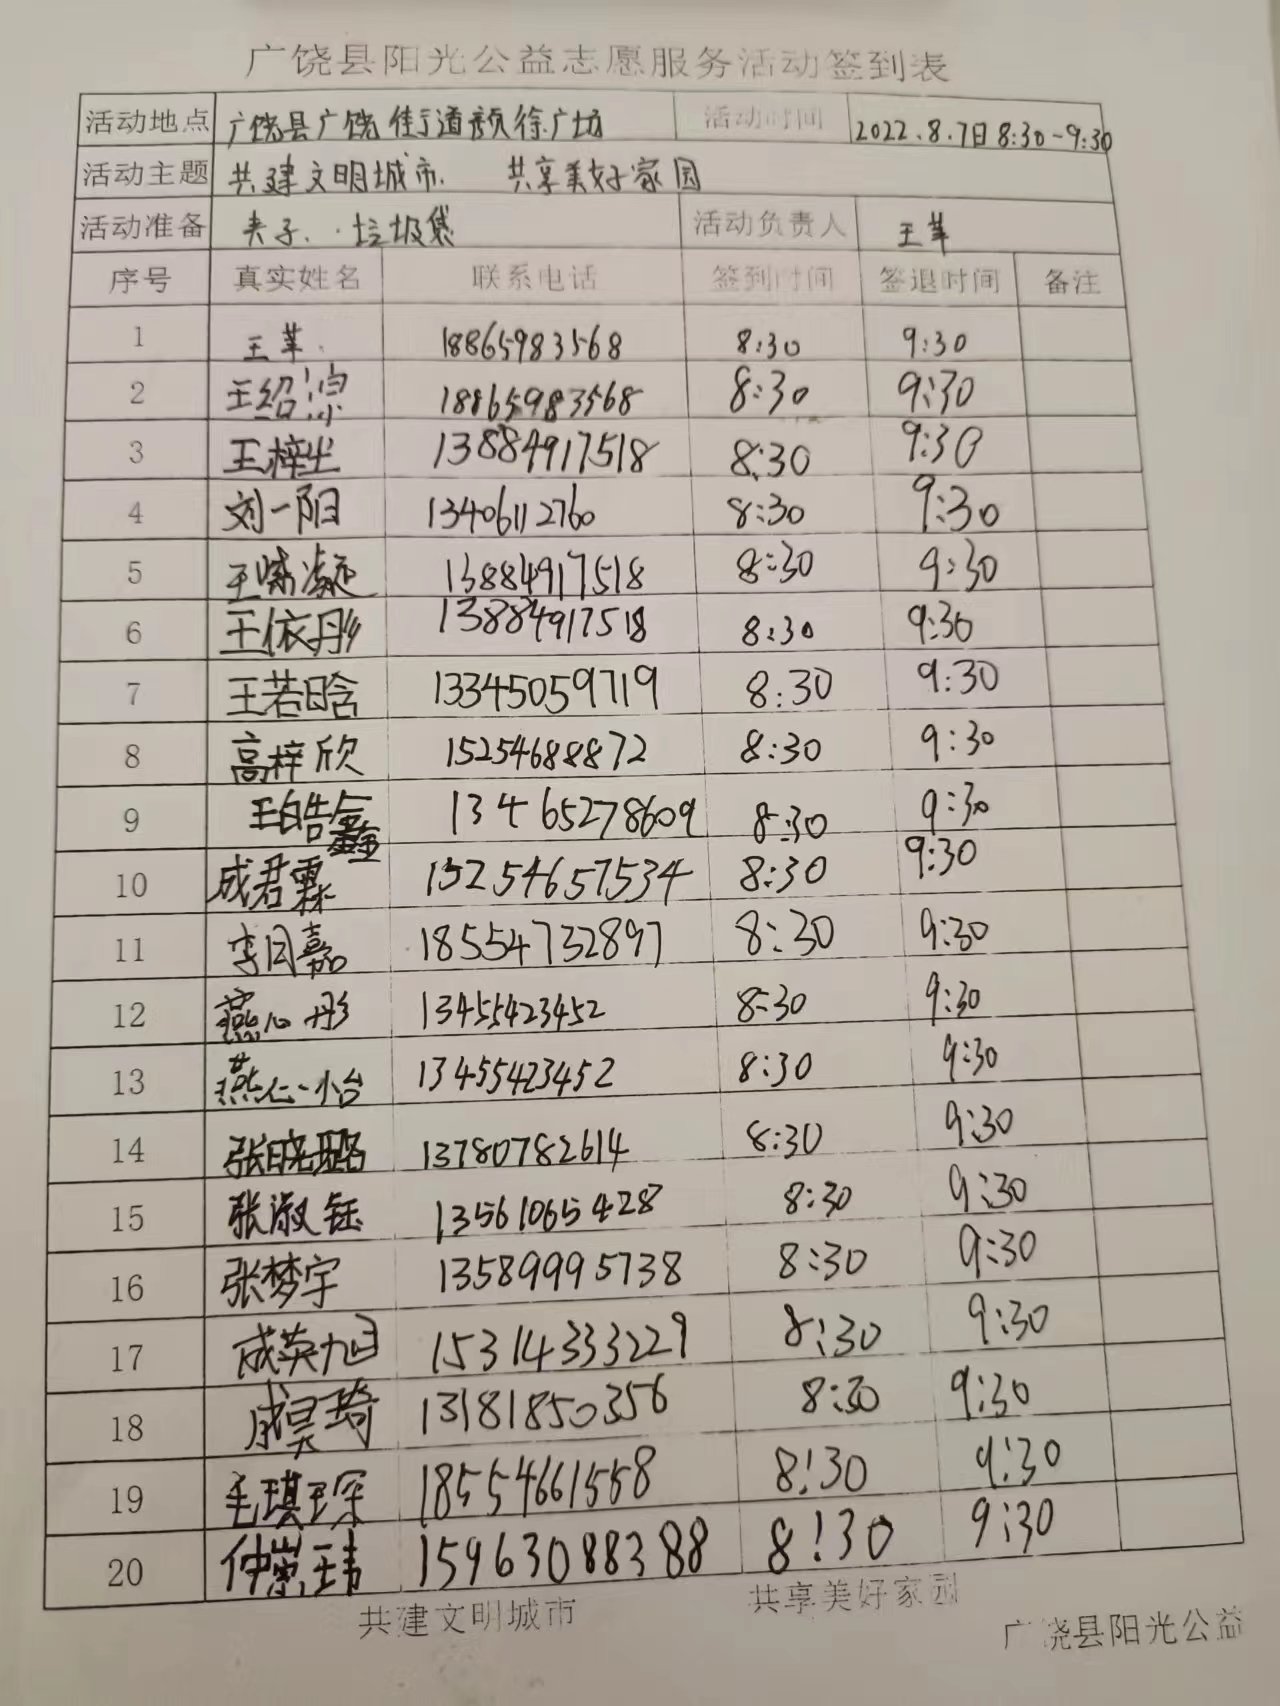 广饶县阳光公益志愿服务活动签到表
活动地点 广饶县广饶街道颜徐广场 活动时间 2022.8.7日8:30-9:30
活动主题 共建文明城市 共享美好家园
活动准备 夹子、垃圾袋 活动负责人 王苹
序号 真实姓名 联系电话 签到时间 签退时间 备注
1 王苹 18865983568 8:30 9:30
2 王绍淙 18865983568 8:30 9:30
3 王梓 13884917518 8:30 9:30
4 刘一阳 13406112760 8:30 9:30
5 王 凝 13884917518 8:30 9:30
6 王依彤 13884917518 8:30 9:30
7 王若晗 13345059719 8:30 9:30
8 高梓欣 15254688872 8:30 9:30
9 王皓鑫 13465278609 8:30 9:30
10 成君霖 15254657534 8:30 9:30
11 李同嘉 18554732897 8:30 9:30
12 燕心彤 13455423452 8:30 9:30
13 燕心怡 13455423452 8:30 9:30
14 张晓璐 13780782614 8:30 9:30
15 张淑钰 13561065428 8:30 9:30
16 张梦宇 13589995738 8:30 9:30
17 成英旭 15314333229 8:30 9:30
18 成昊琦 13181850356 8:30 9:30
19 毛琪琛 18554661558 8:30 9:30
20 仲崇玮 15963088388 8:30 9:30
共建文明城市 共享美好家园
广饶县阳光公益